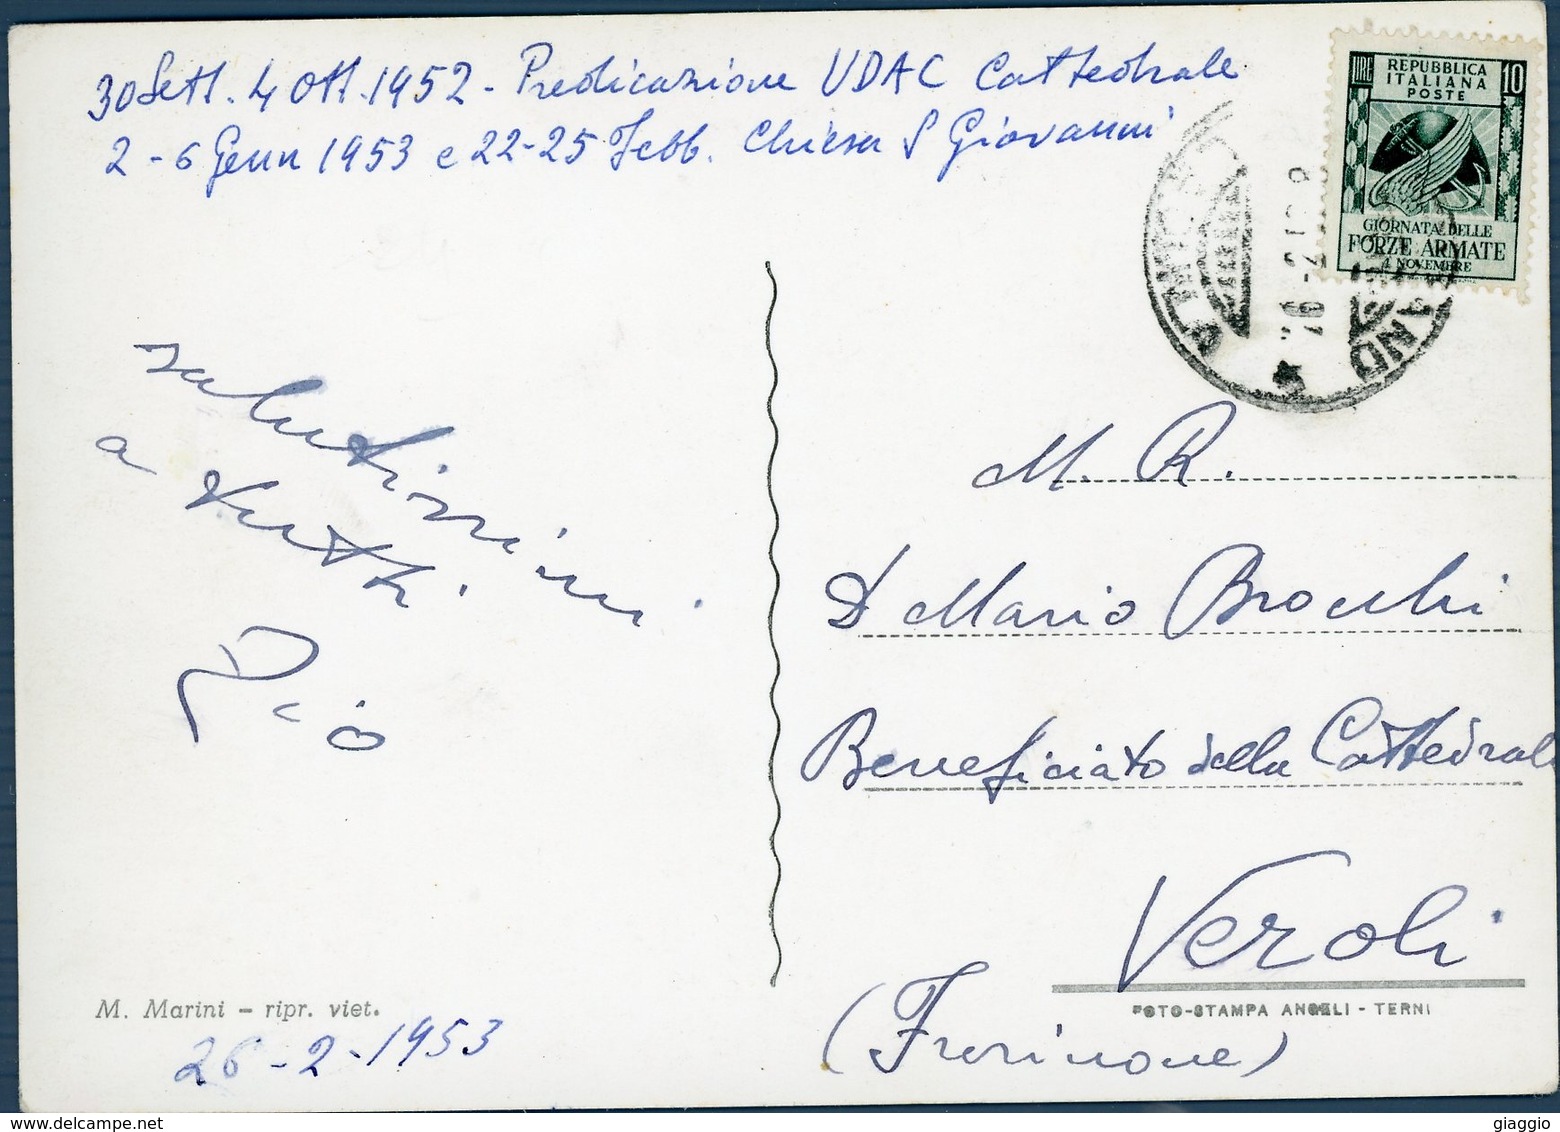 30 Sett. 4 Ott. 1952 - Predicazione UDAC Cattedrale
2 - 6 Genn 1953 e 22-25 Febb. Chiesa S Giovanni
LIRE REPUBBLICA 10
ITALIANA
POSTE
GIORNATA DELLE
FORZE ARMATE
4 NOVEMBRE
salutissimi
a tutti.
Pio
M. R.
D Mario Brocchi
Beneficiato della Cattedrale
Veroli
(Frosinone)
M. Marini - ripr. viet.
FOTO-STAMPA ANGELI - TERNI
26-2-1953
giaggio